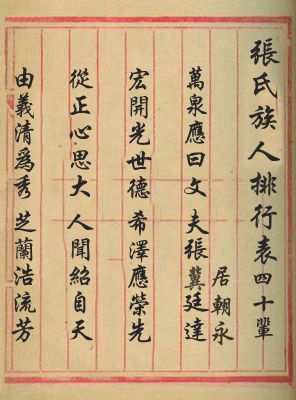 張氏族人排行表四十輩
居朝永
萬泉應曰文夫張冀廷達
宏開光世德希澤應榮先
從正心思大人聞紹自天
由義清爲秀芝蘭浩流芳